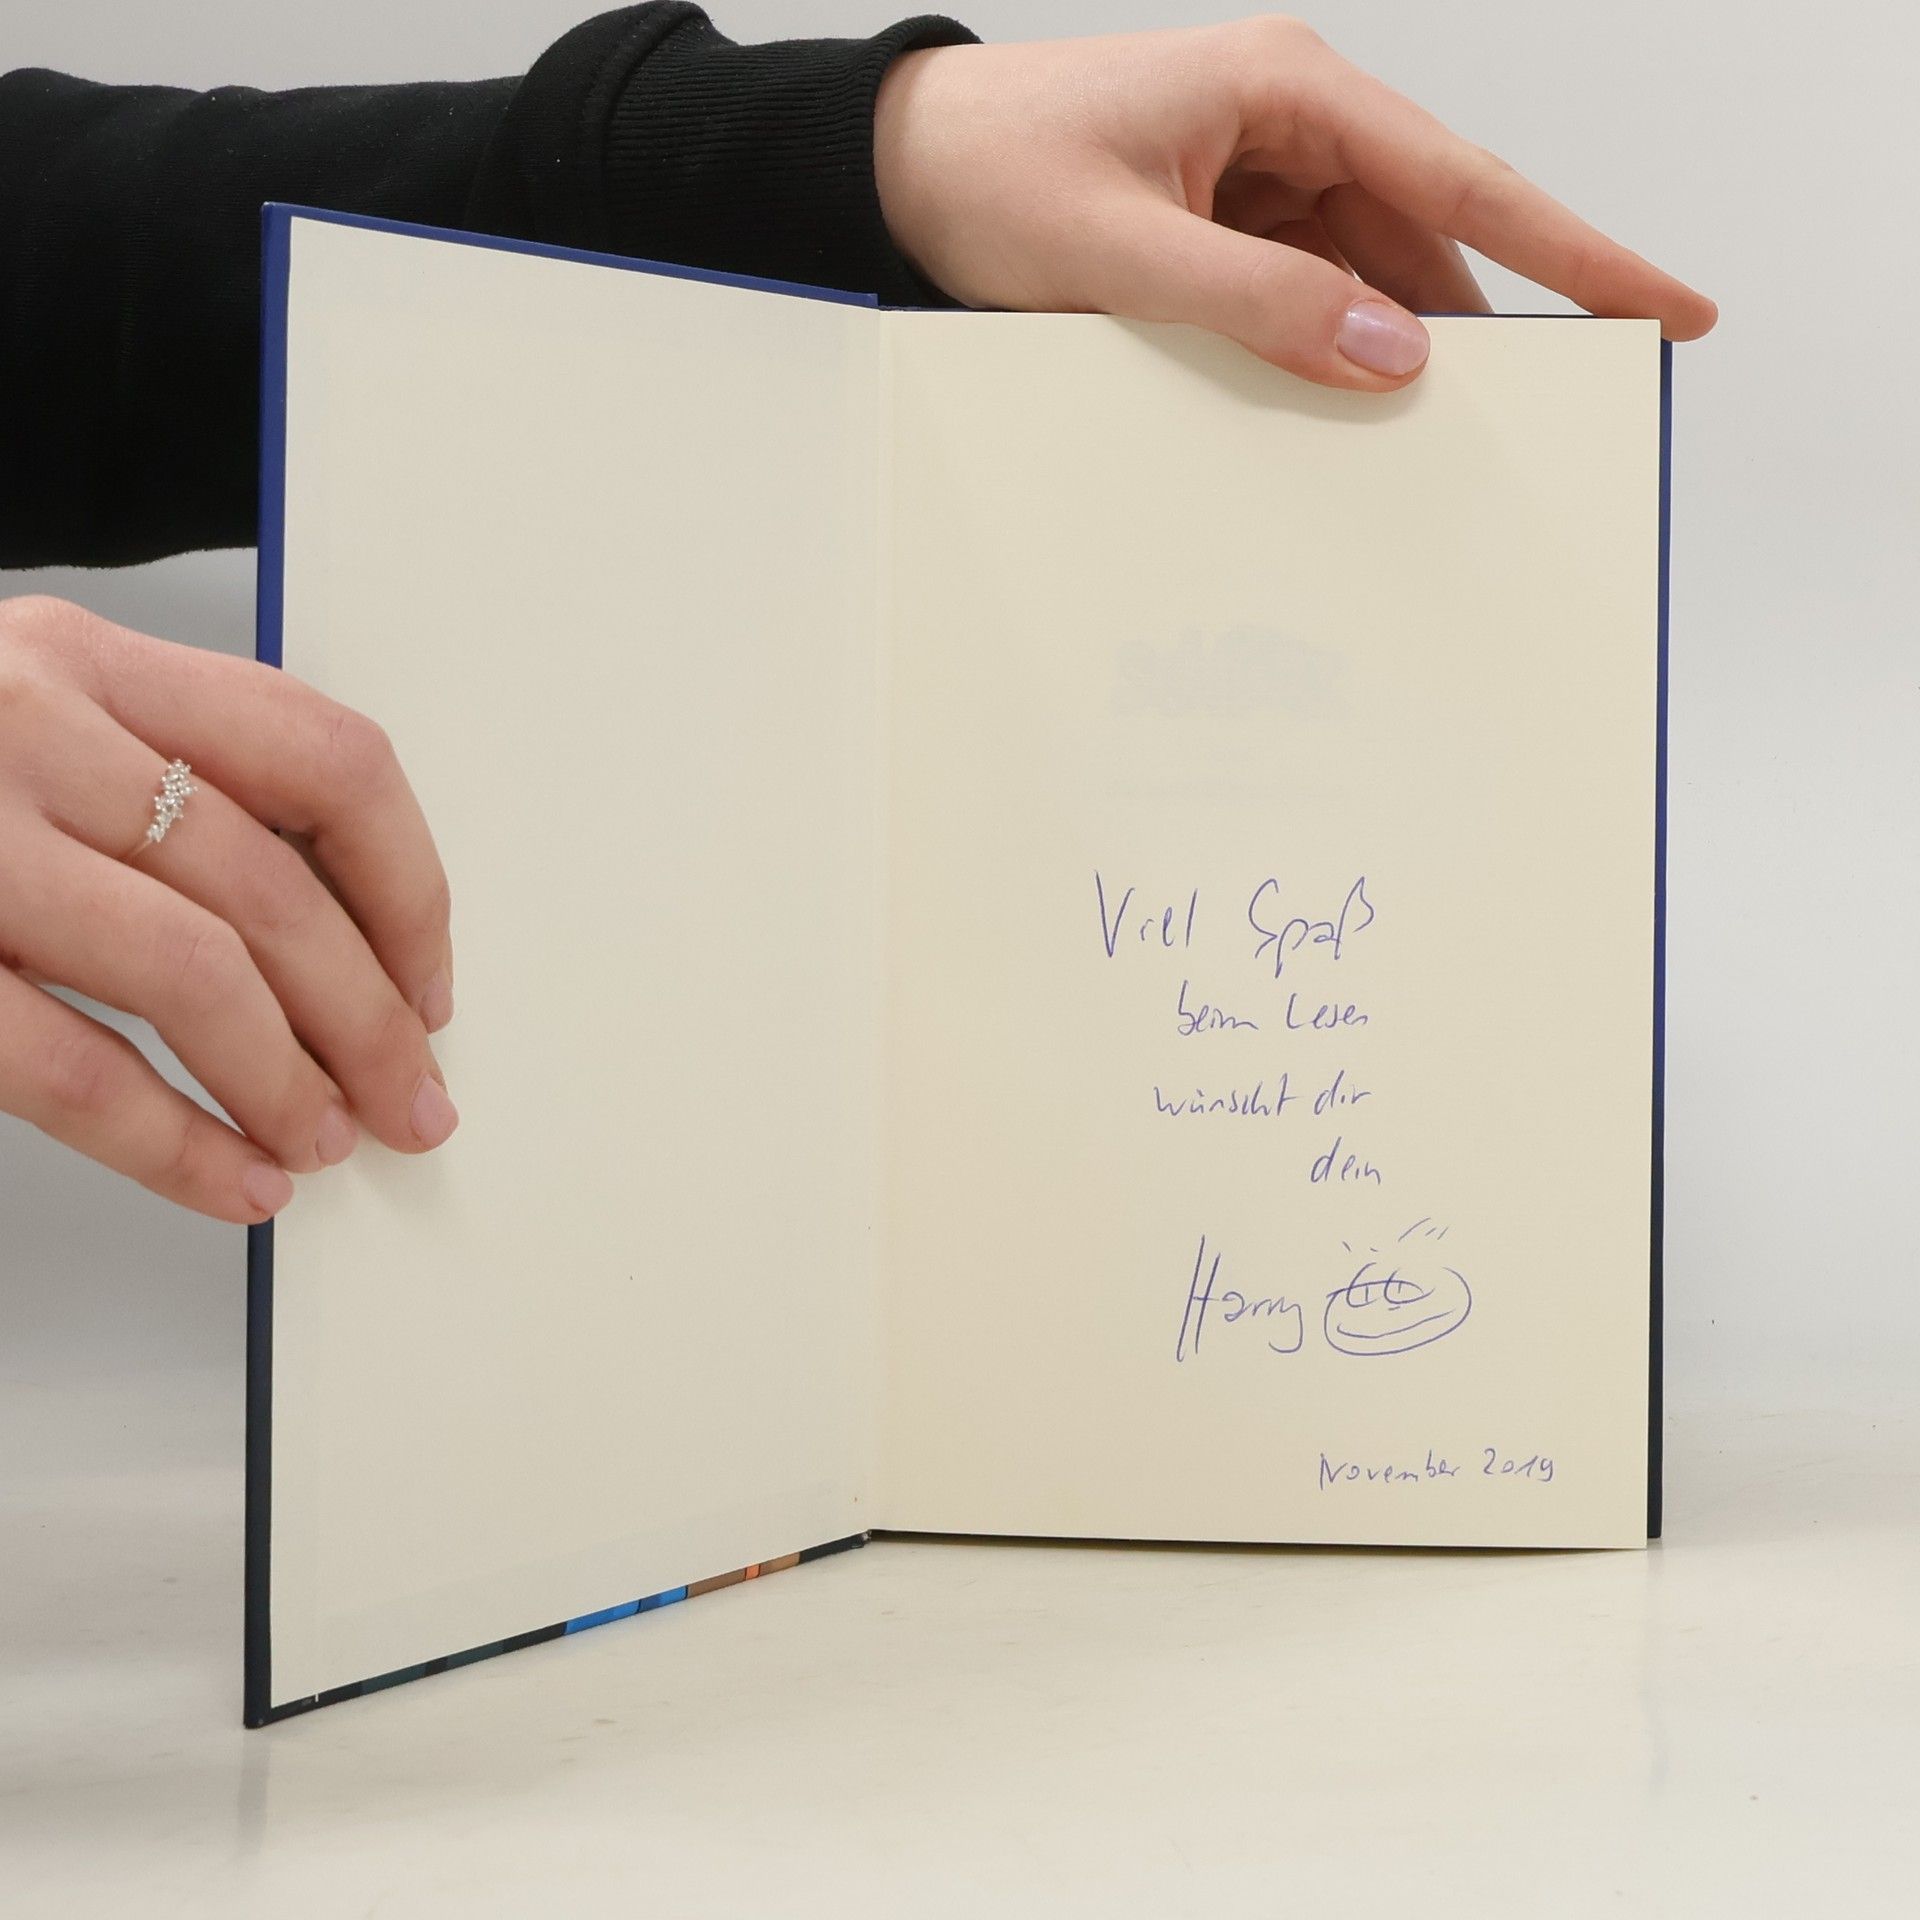 Viel Spaß
beim Lesen
wünscht dir
dein
Harry
November 2019